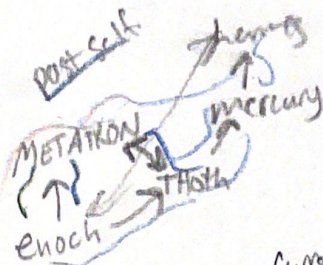 post self
mercury
METATRON
THoth
enoch